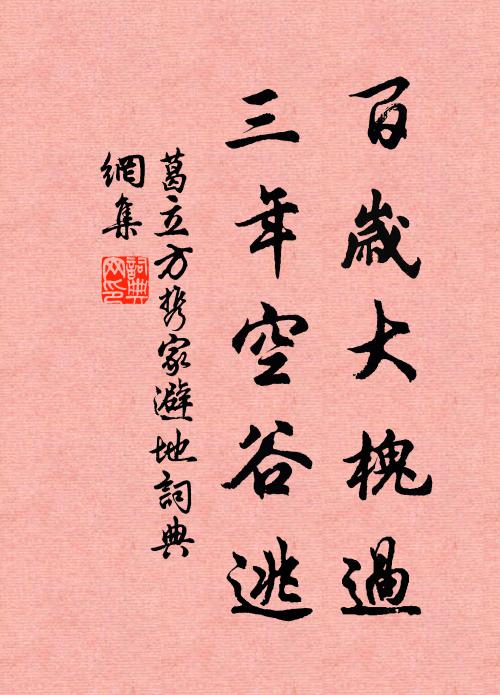 百歲大槐過
三年空谷逃
葛立方携家避地詞典
網集
詞典
网印